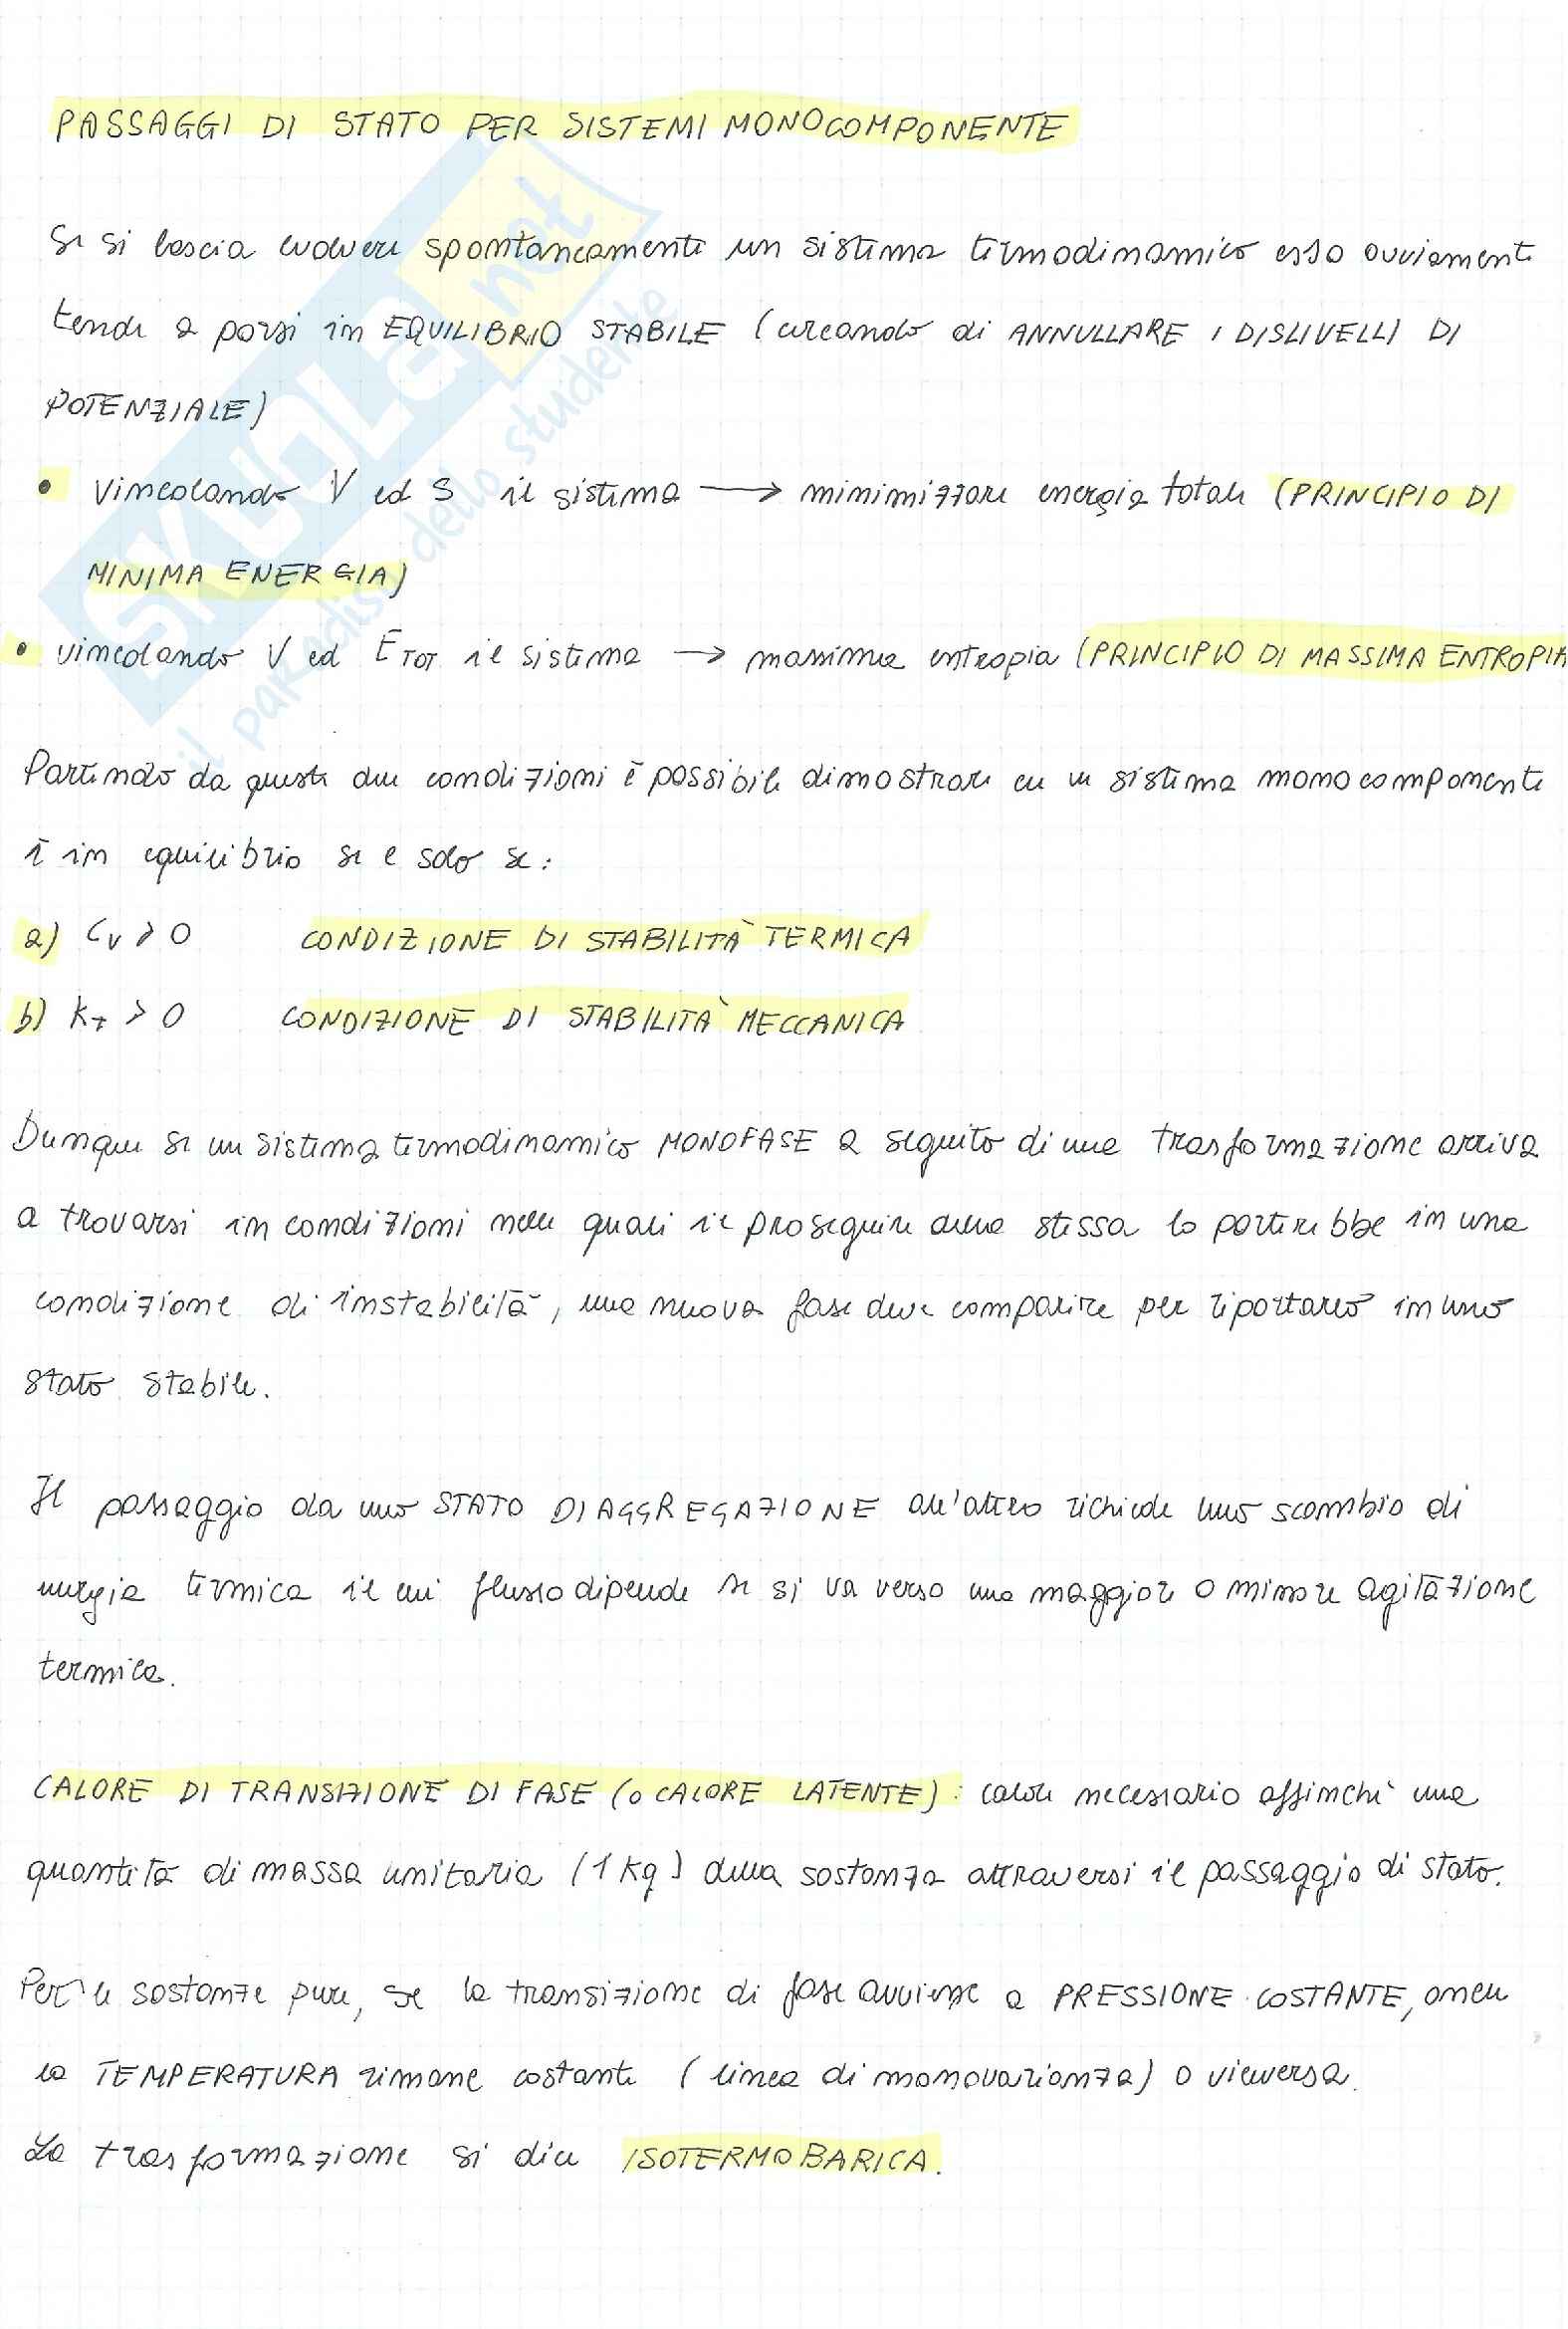 PASSAGGI DI STATO PER SISTEMI MONOCOMPONENTE
Se si lascia evolvere spontaneamente un sistema termodinamico esso ovviamente
tende a porsi in EQUILIBRIO STABILE (cercando di ANNULLARE I DISLIVELLI DI
POTENZIALE)
• Vincolando V ed S il sistema → minimizzare energia totale (PRINCIPIO DI
MINIMA ENERGIA)
• vincolando V ed E_TOT il sistema → massima entropia (PRINCIPIO DI MASSIMA ENTROPIA
Partendo da queste due condizioni è possibile dimostrare che un sistema monocomponente
è in equilibrio se e solo se:
a) C_V > 0 CONDIZIONE DI STABILITÀ TERMICA
b) K_T > 0 CONDIZIONE DI STABILITÀ MECCANICA
Dunque se un sistema termodinamico MONOFASE a seguito di una trasformazione arriva
a trovarsi in condizioni nelle quali il proseguire della stessa lo porterebbe in una
condizione di instabilità, una nuova fase deve comparire per riportarlo in uno
stato stabile.
Il passaggio da uno STATO DI AGGREGAZIONE all'altro richiede uno scambio di
energia termica il cui flusso dipende se si va verso una maggiore o minore agitazione
termica.
CALORE DI TRANSIZIONE DI FASE (o CALORE LATENTE): calore necessario affinchè una
quantità di massa unitaria (1 kg) della sostanza attraversi il passaggio di stato.
Per le sostanze pure, se la transizione di fase avviene a PRESSIONE COSTANTE, anche
la TEMPERATURA rimane costante (linea di monovarianza) o viceversa.
La trasformazione si dice ISOTERMOBARICA.
SKUOLA.net
il paradiso dello studente